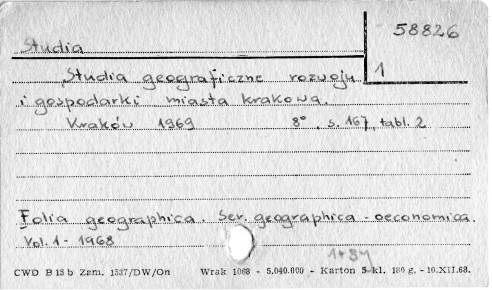 58826
Studia
Studia geograficzne rozwoju 1
i gospodarki miasta Krakowa.
Kraków 1969 8°, s. 167, tabl. 2
Folia geographica. Ser. geographica-oeconomica.
Vol. 1 - 1968
1+84
CWD B 15 b Zam. 1537/DW/On Wrak 1068 - 5.040.000 - Karton 5 kl. 180 g. - 10.XII.68.